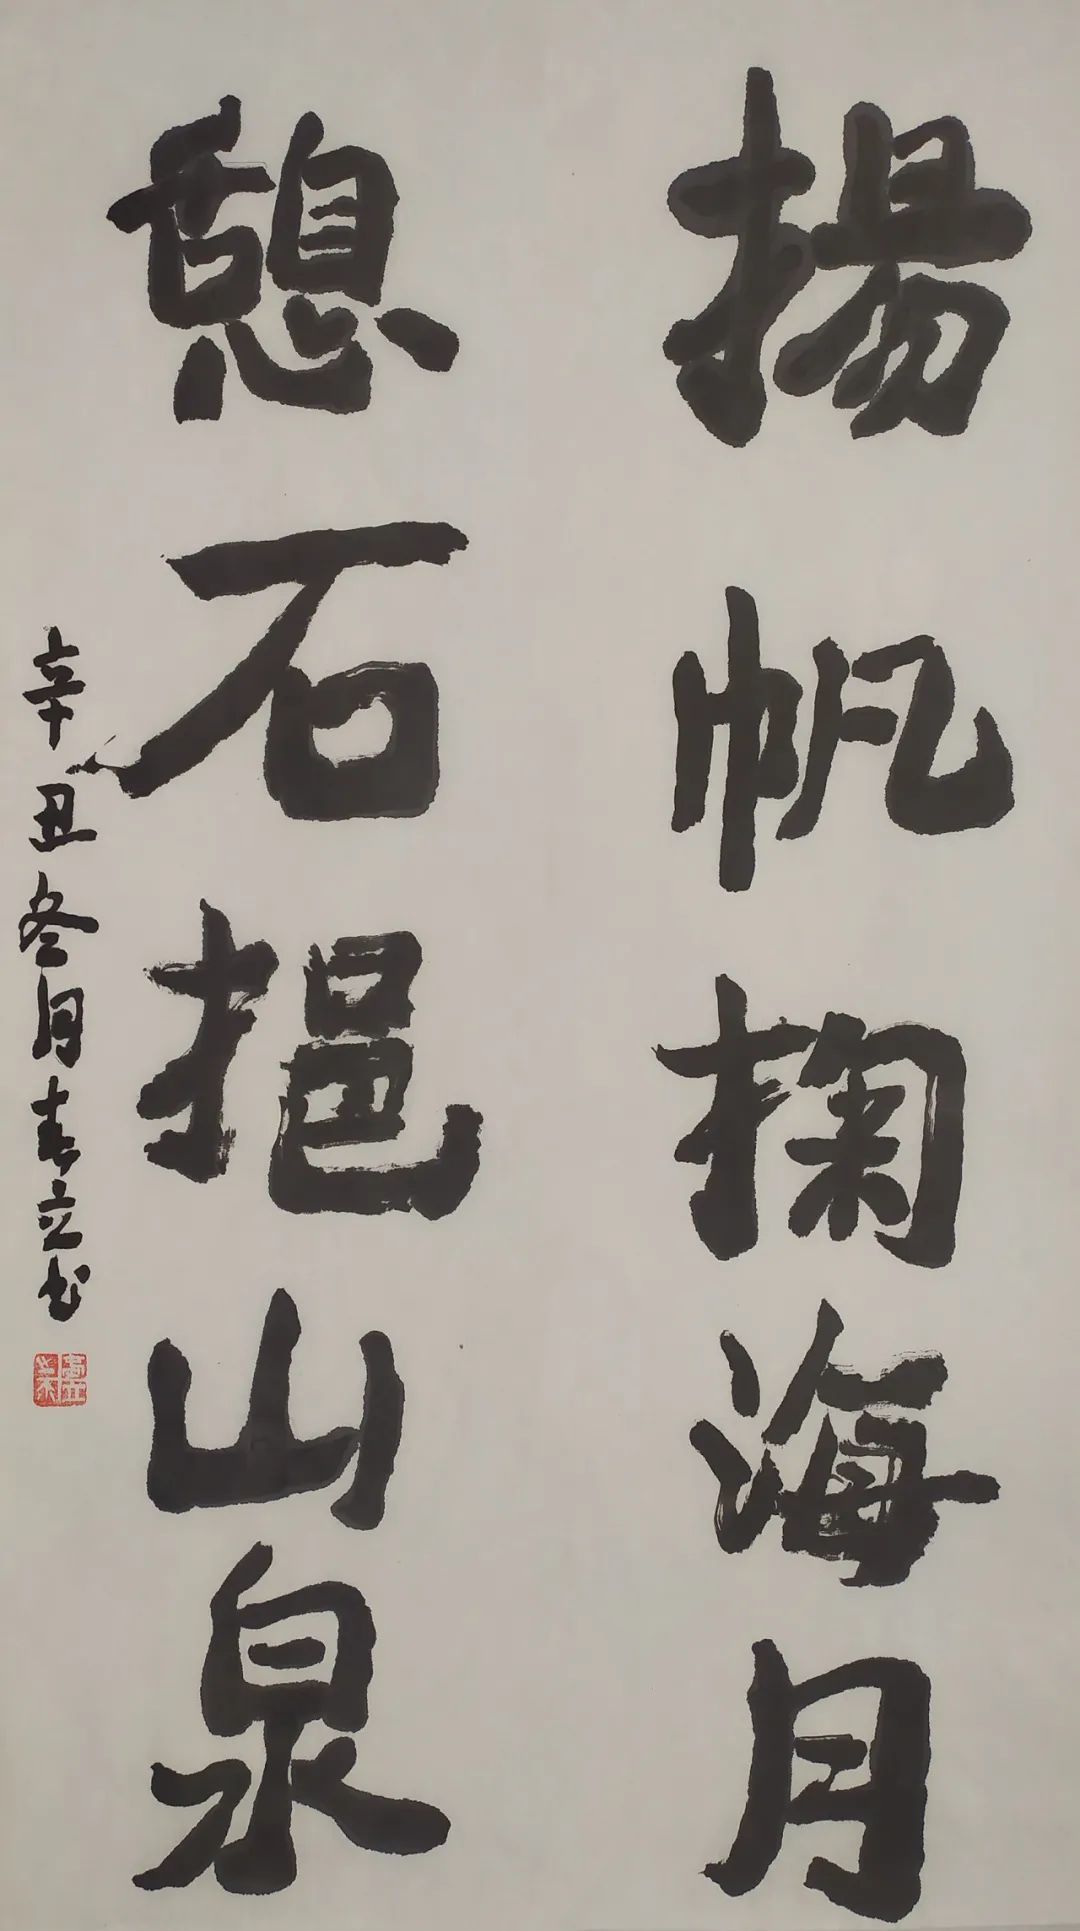 揚帆掬海月
憩石挹山泉
辛丑冬月春立书